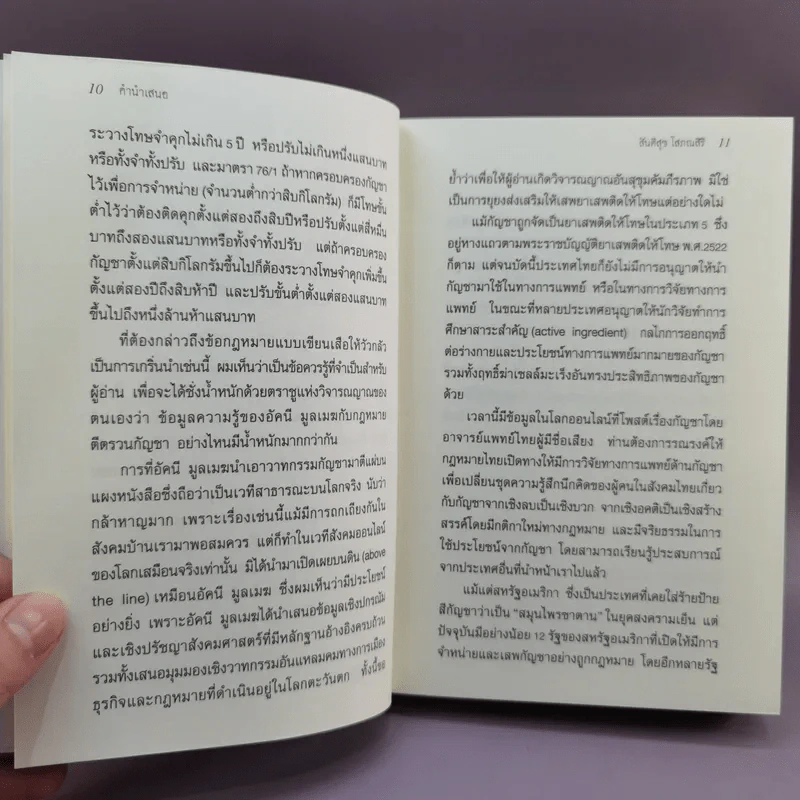 10 คำนำเสนอ
ระวางโทษจำคุกไม่เกิน 5 ปี หรือปรับไม่เกินหนึ่งแสนบาท
หรือทั้งจำทั้งปรับ และมาตรา 76/1 ถ้าหากครอบครองกัญชา
ไว้เพื่อการจำหน่าย (จำนวนต่ำกว่าสิบกิโลกรัม) ก็มีโทษขั้น
ต่ำไว้ว่าต้องติดคุกตั้งแต่สองถึงสิบปีหรือปรับตั้งแต่สี่หมื่น
บาทถึงสองแสนบาทหรือทั้งจำทั้งปรับ แต่ถ้าครอบครอง
กัญชาตั้งแต่สิบกิโลกรัมขึ้นไปก็ต้องระวางโทษจำคุกเพิ่มขึ้น
ตั้งแต่สองปีถึงสิบห้าปี และปรับขั้นต่ำตั้งแต่สองแสนบาท
ขึ้นไปถึงหนึ่งล้านห้าแสนบาท
ที่ต้องกล่าวถึงข้อกฎหมายแบบเขียนเสือให้วัวกลัว
เป็นการเกริ่นนำเช่นนี้ ผมเห็นว่าเป็นข้อควรรู้ที่จำเป็นสำหรับ
ผู้อ่าน เพื่อจะได้ชั่งน้ำหนักด้วยตราชูแห่งวิจารณญาณของ
ตนเองว่า ข้อมูลความรู้ของอัคนี มูลเมฆกับกฎหมาย
ตีตรวนกัญชา อย่างไหนมีน้ำหนักมากกว่ากัน
การที่อัคนี มูลเมฆนำเอาวาทกรรมกัญชามาตีแผ่บน
แผงหนังสือซึ่งถือว่าเป็นเวทีสาธารณะบนโลกจริง นับว่า
กล้าหาญมาก เพราะเรื่องเช่นนี้แม้มีการถกเถียงกันใน
สังคมบ้านเรามาพอสมควร แต่ก็ทำในเวทีสังคมออนไลน์
ของโลกเสมือนจริงเท่านั้น มิได้นำมาเปิดเผยบนดิน (above
the line) เหมือนอัคนี มูลเมฆ ซึ่งผมเห็นว่ามีประโยชน์
อย่างยิ่ง เพราะอัคนี มูลเมฆได้นำเสนอข้อมูลเชิงปกรณัม
และเชิงปรัชญาสังคมศาสตร์ที่มีหลักฐานอ้างอิงครบถ้วน
รวมทั้งเสนอมุมมองเชิงวาทกรรมอันแหลมคมทางการเมือง
ธุรกิจและกฎหมายที่ดำเนินอยู่ในโลกตะวันตก ทั้งนี้ขอ
สันติสุข โสภณสิริ 11
ย้ำว่าเพื่อให้ผู้อ่านเกิดวิจารณญาณอันสุขุมคัมภีรภาพ มิใช่
เป็นการยุยงส่งเสริมให้เสพยาเสพติดให้โทษแต่อย่างใดไม่
แม้กัญชาถูกจัดเป็นยาเสพติดให้โทษในประเภท 5 ซึ่ง
อยู่หางแถวตามพระราชบัญญัติยาเสพติดให้โทษ พ.ศ.2522
ก็ตาม แต่จนบัดนี้ประเทศไทยก็ยังไม่มีการอนุญาตให้นำ
กัญชามาใช้ในทางการแพทย์ หรือในทางการวิจัยทางการ
แพทย์ ในขณะที่หลายประเทศอนุญาตให้นักวิจัยทำการ
ศึกษาสาระสำคัญ (active ingredient) กลไกการออกฤทธิ์
ต่อร่างกายและประโยชน์ทางการแพทย์มากมายของกัญชา
รวมทั้งฤทธิ์ฆ่าเซลล์มะเร็งอันทรงประสิทธิภาพของกัญชา
ด้วย
เวลานี้มีข้อมูลในโลกออนไลน์ที่โพสต์เรื่องกัญชาโดย
อาจารย์แพทย์ไทยผู้มีชื่อเสียง ท่านต้องการรณรงค์ให้
กฎหมายไทยเปิดทางให้มีการวิจัยทางการแพทย์ด้านกัญชา
เพื่อเปลี่ยนชุดความรู้สึกนึกคิดของผู้คนในสังคมไทยเกี่ยว
กับกัญชาจากเชิงลบเป็นเชิงบวก จากเชิงอคติเป็นเชิงสร้าง
สรรค์โดยมีกติกาใหม่ทางกฎหมาย และมีจริยธรรมในการ
ใช้ประโยชน์จากกัญชา โดยสามารถเรียนรู้ประสบการณ์
จากประเทศอื่นที่นำหน้าเราไปแล้ว
แม้แต่สหรัฐอเมริกา ซึ่งเป็นประเทศที่เคยใส่ร้ายป้าย
สีกัญชาว่าเป็น “สมุนไพรซาตาน” ในยุคสงครามเย็น แต่
ปัจจุบันมีอย่างน้อย 12 รัฐของสหรัฐอเมริกาที่เปิดให้มีการ
จำหน่ายและเสพกัญชาอย่างถูกกฎหมาย โดยอีกหลายรัฐ